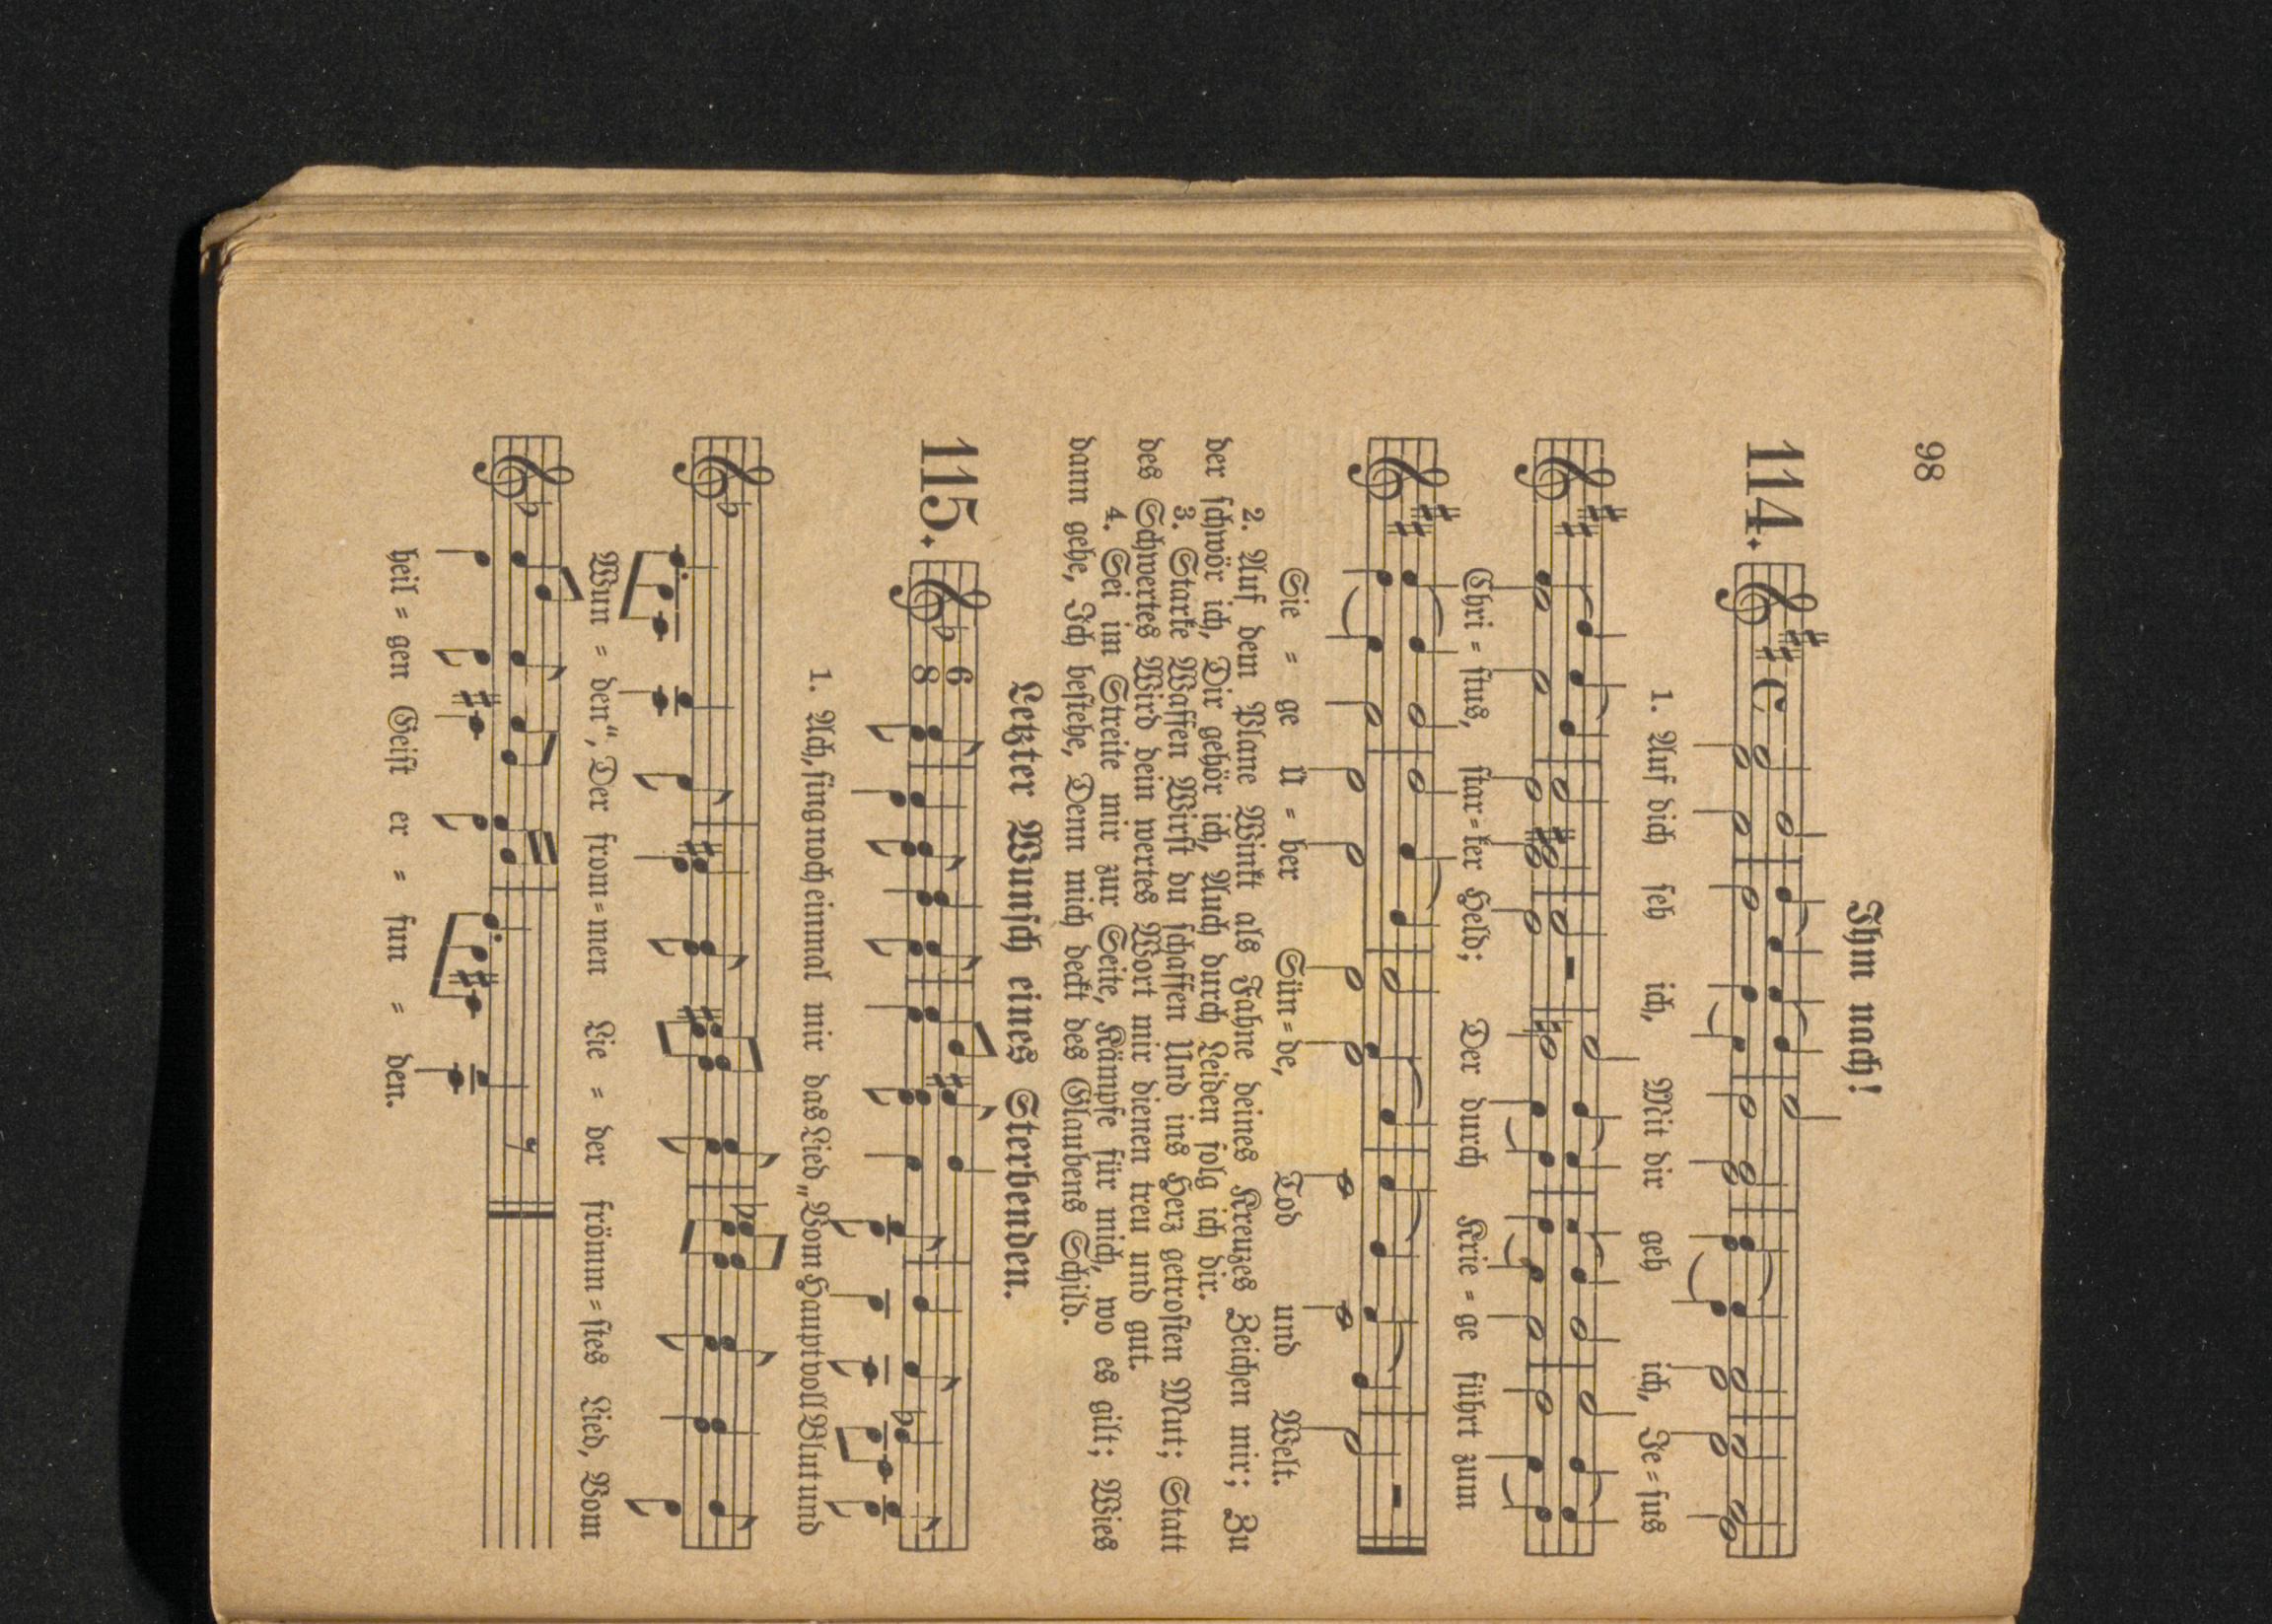 98
Ihm nach!
114.
1. Auf dich seh ich, Mit dir geh ich, Je=sus
Chri = stus, star=ker Held; Der durch Krie = ge führt zum
Sie = ge Ü = ber Sün=de, Tod und Welt.
2. Auf dem Plane Winkt als Fahne deines Kreuzes Zeichen mir; Zu
der schwör ich, Dir gehör ich, Auch durch Leiden folg ich dir.
3. Starke Waffen Wirst du schaffen Und ins Herz getrosten Mut; Statt
des Schwertes Wird dein wertes Wort mir dienen treu und gut.
4. Sei im Streite mir zur Seite, Kämpfe für mich, wo es gilt; Wies
dann gehe, Ich bestehe, Denn mich deckt des Glaubens Schild.
Letzter Wunsch eines Sterbenden.
115.
6
8
1. Ach, sing noch einmal mir das Lied „Vom Haupt voll Blut und
Wun = den“, Der from=men Lie = der frömm=stes Lied, Vom
heil = gen Geist er = fun = den.